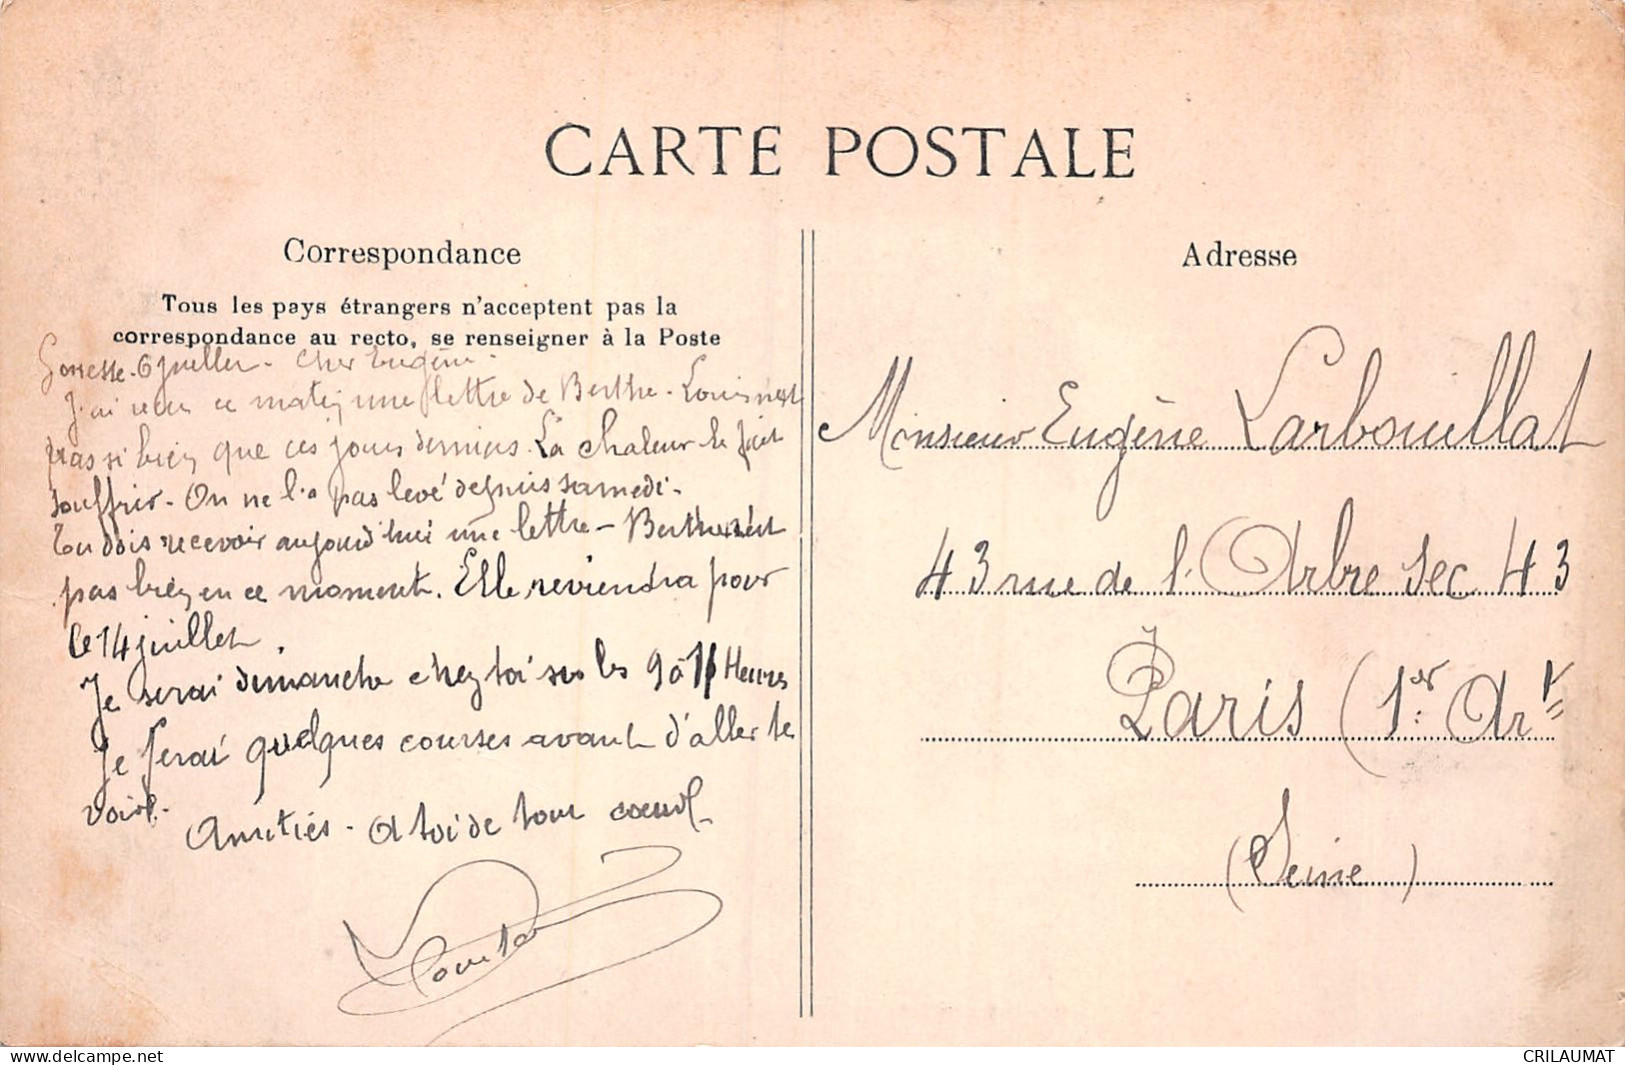 CARTE POSTALE
Correspondance
Tous les pays étrangers n'acceptent pas la
correspondance au recto, se renseigner à la Poste
Gonesse - 6 juillet - Cher Eugène -
J'ai reçu ce matin une lettre de Berthe - Louis n'est
pas si bien que ces jours derniers. La chaleur le fait
souffrir - On ne l'a pas levé depuis samedi -
Tu dois recevoir aujourd'hui une lettre - Berthe n'est
pas bien en ce moment. Elle reviendra pour
le 14 juillet.
Je serai dimanche chez toi sur les 9 à 11 Heures
Je ferai quelques courses avant d'aller te
voir -
Amitiés - A toi de tout coeur -
Adresse
Monsieur Eugène Larbouillat
43 rue de l'Arbre Sec 43
Paris (1er Art
(Seine)
delcampe.net
CRILAUMAT